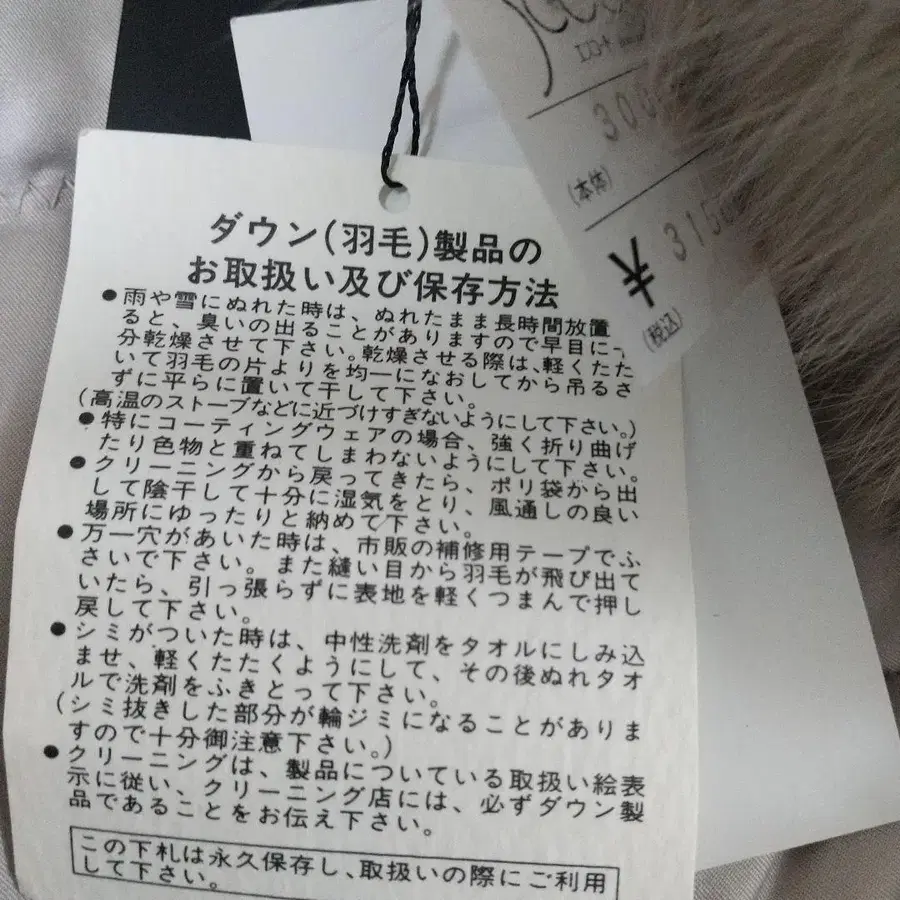 300
(本体)
¥315
(税込)
ダウン(羽毛)製品の
お取扱い及び保存方法
●雨や雪にぬれた時は、ぬれたまま長時間放置
ると、臭いの出ることがありますので早目に
分乾燥させて下さい。乾燥させる際は、軽くたた
いて羽毛の片よりを均一になおしてから吊るさ
ずに平らに置いて干して下さい。
(高温のストーブなどに近づけすぎないようにして下さい。)
●特にコーティングウェアの場合、強く折り曲げ
たり色物と重ねてしまわないようにして下さい。
●クリーニングから戻ってきたら、ポリ袋から出
して陰干して十分に湿気をとり、風通しの良い
場所にゆったりと納めて下さい。
●万一穴があいた時は、市販の補修用テープでふ
さいで下さい。また縫い目から羽毛が飛び出て
いたら、引っ張らずに表地を軽くつまんで押し
戻して下さい。
●シミがついた時は、中性洗剤をタオルにしみ込
ませ、軽くたたくようにして、その後ぬれタオ
ルで洗剤をふきとって下さい。
(シミ抜きした部分が輪ジミになることがありま
すので十分御注意下さい。)
●クリーニングは、製品についている取扱い絵表
示に従い、クリーニング店には、必ずダウン製
品であることをお伝え下さい。
この下札は永久保存し、取扱いの際にご利用
して下さい。